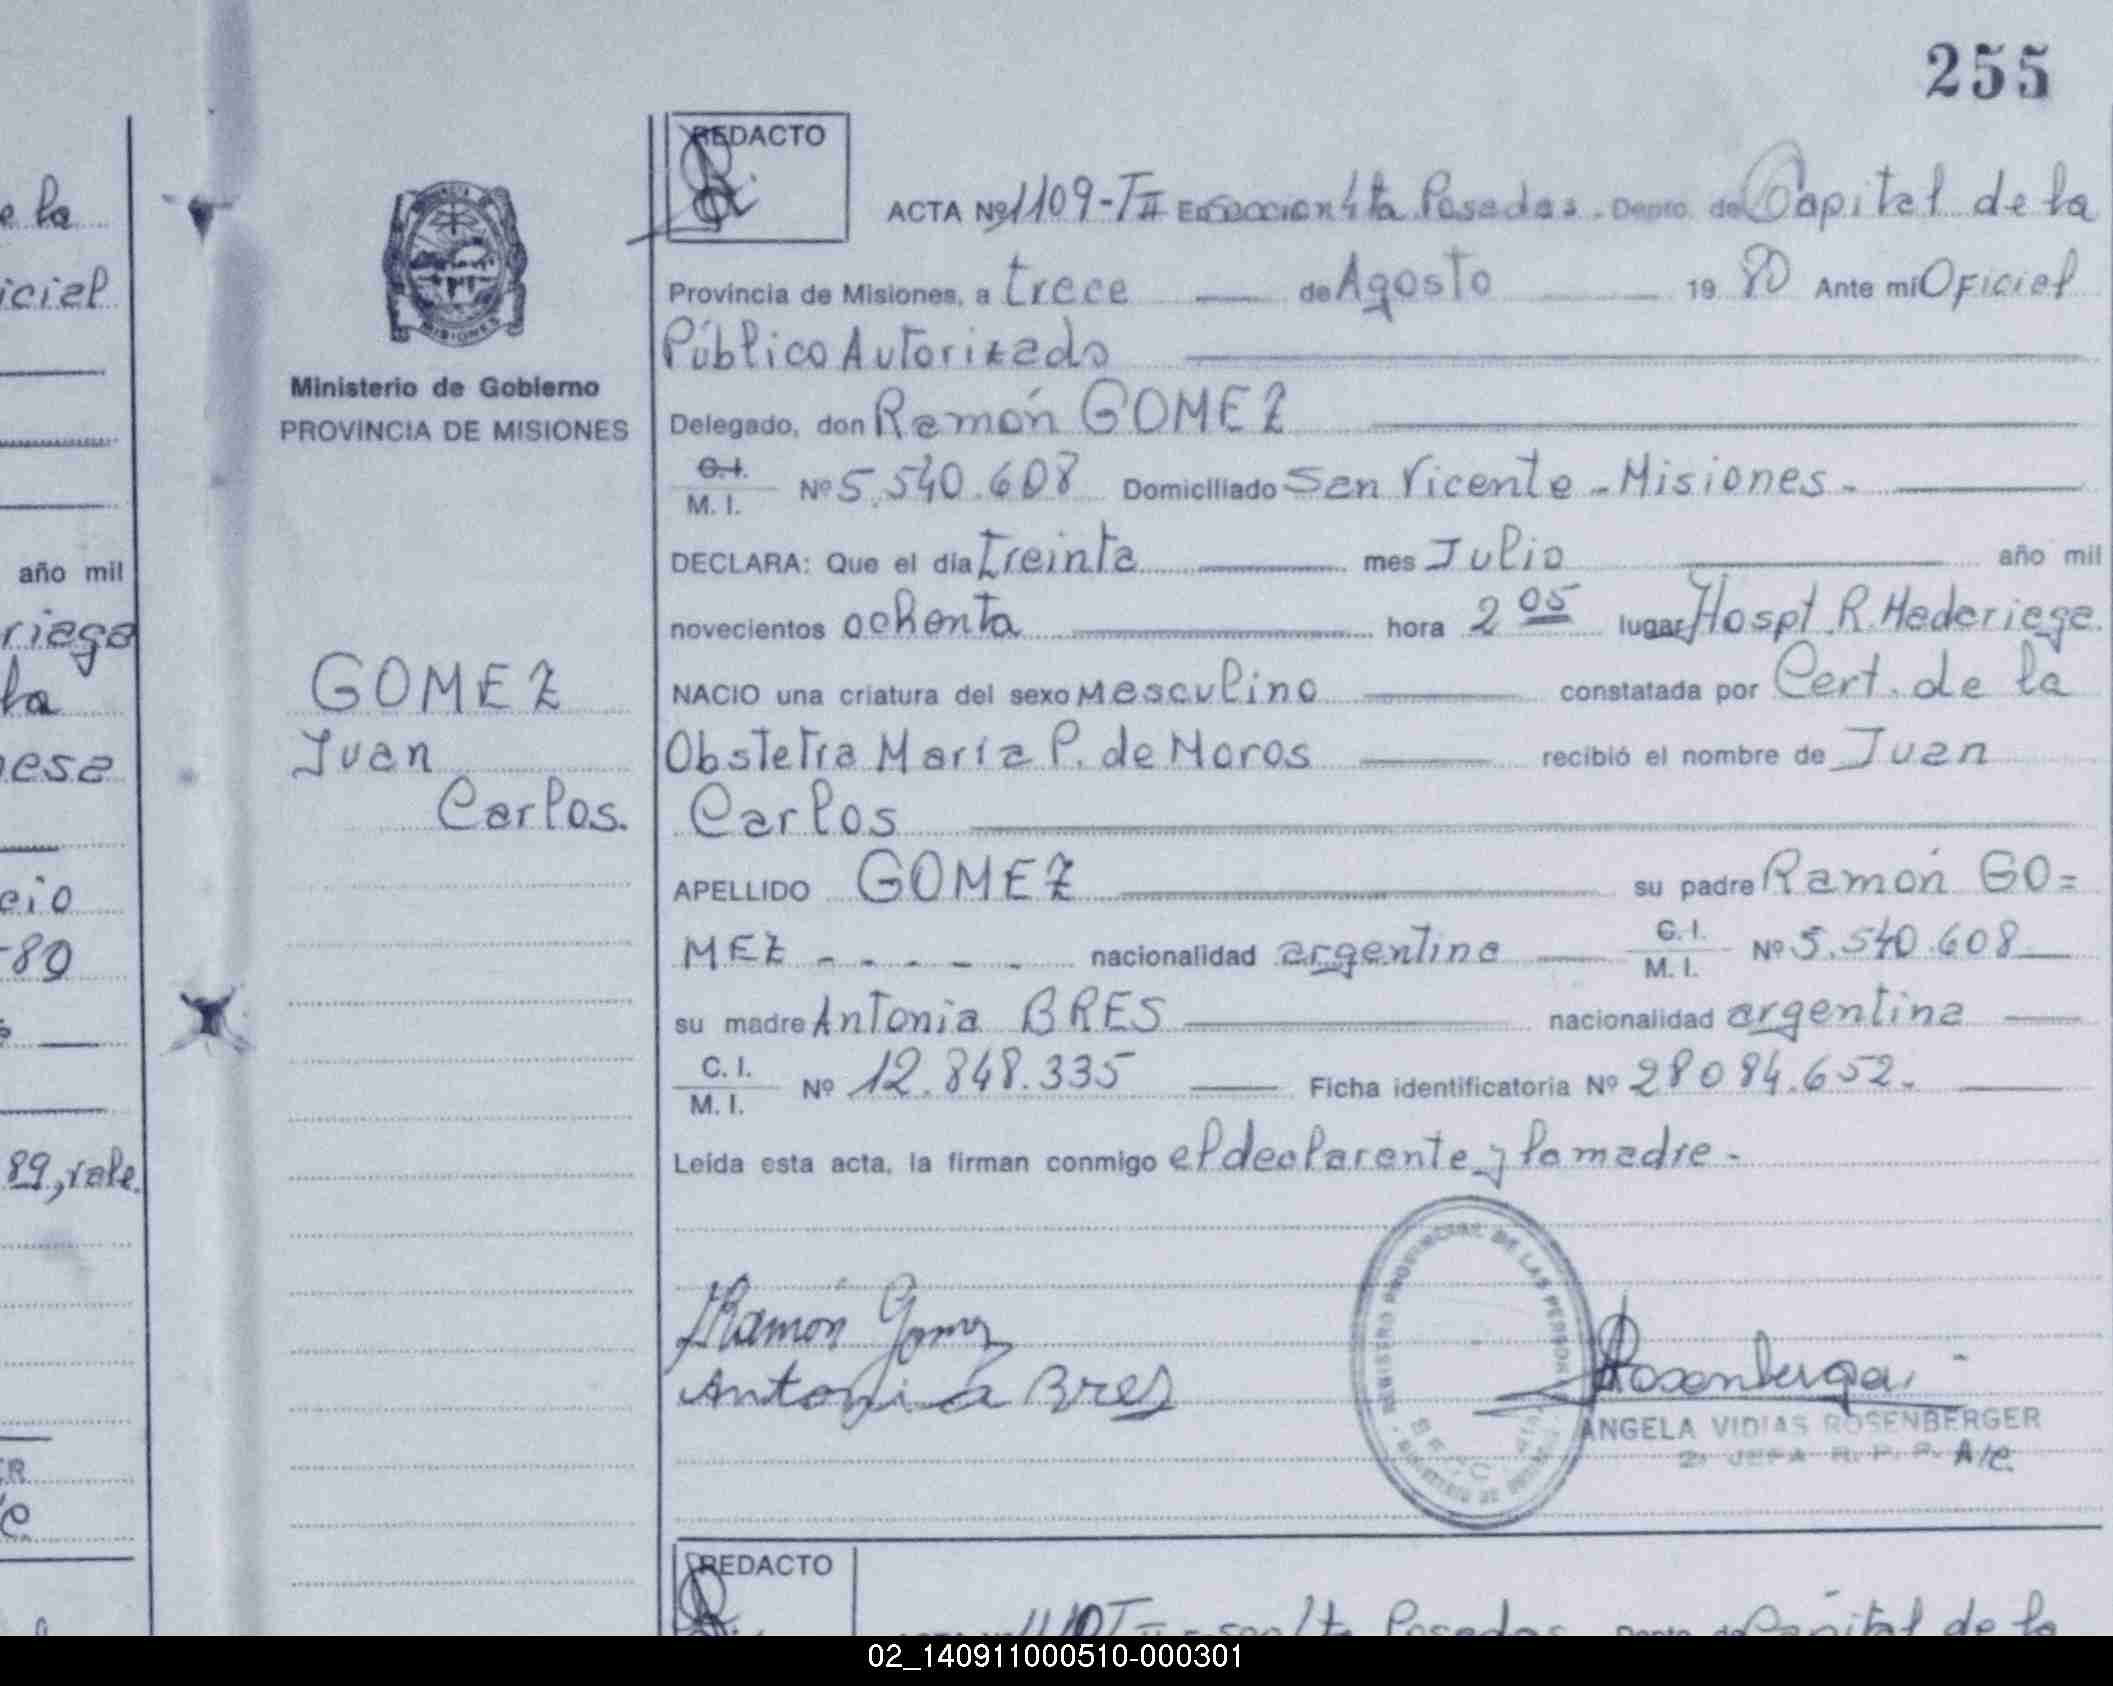 255
REDACTO
ACTA Nº 1109-TII En Seccion 4ta Posadas. Depto. de Capital de la
Provincia de Misiones, a trece de Agosto 1980 Ante mi Oficial
Público Autorizado
Delegado, don Ramón GOMEZ
C.I.
M. I. Nº 5.540.608 Domiciliado San Vicente - Misiones -
DECLARA: Que el día treinta mes Julio año mil
novecientos ochenta hora 2 05 lugar Hospt. R. Madariaga
NACIO una criatura del sexo masculino constatada por Cert. de la
Obstetra María P. de Moros recibió el nombre de Juan
Carlos
APELLIDO GOMEZ su padre Ramón GO=
MEZ - - - - - nacionalidad argentina C.I. M. I. Nº 5.540.608
su madre Antonia BRES nacionalidad argentina
C. I.
M. I. Nº 12.848.335 Ficha identificatoria Nº 28084.652.
Leída esta acta, la firman conmigo el declarante y la madre -
Ramón Gomez
Antonia Bres
REGISTRO PROVINCIAL DE LAS PERSONAS
Rosenberger
ANGELA VIDIAS ROSENBERGER
2º JEFA R. P. P. A/c.
MISIONES
Ministerio de Gobierno
PROVINCIA DE MISIONES
GOMEZ
Juan
Carlos.
e la
icial
año mil
riaga
la
esa
cio
-80
89, vale.
ER
REDACTO
1110 TII 4ta Posadas Depto. de Capital de la
02_140911000510-000301